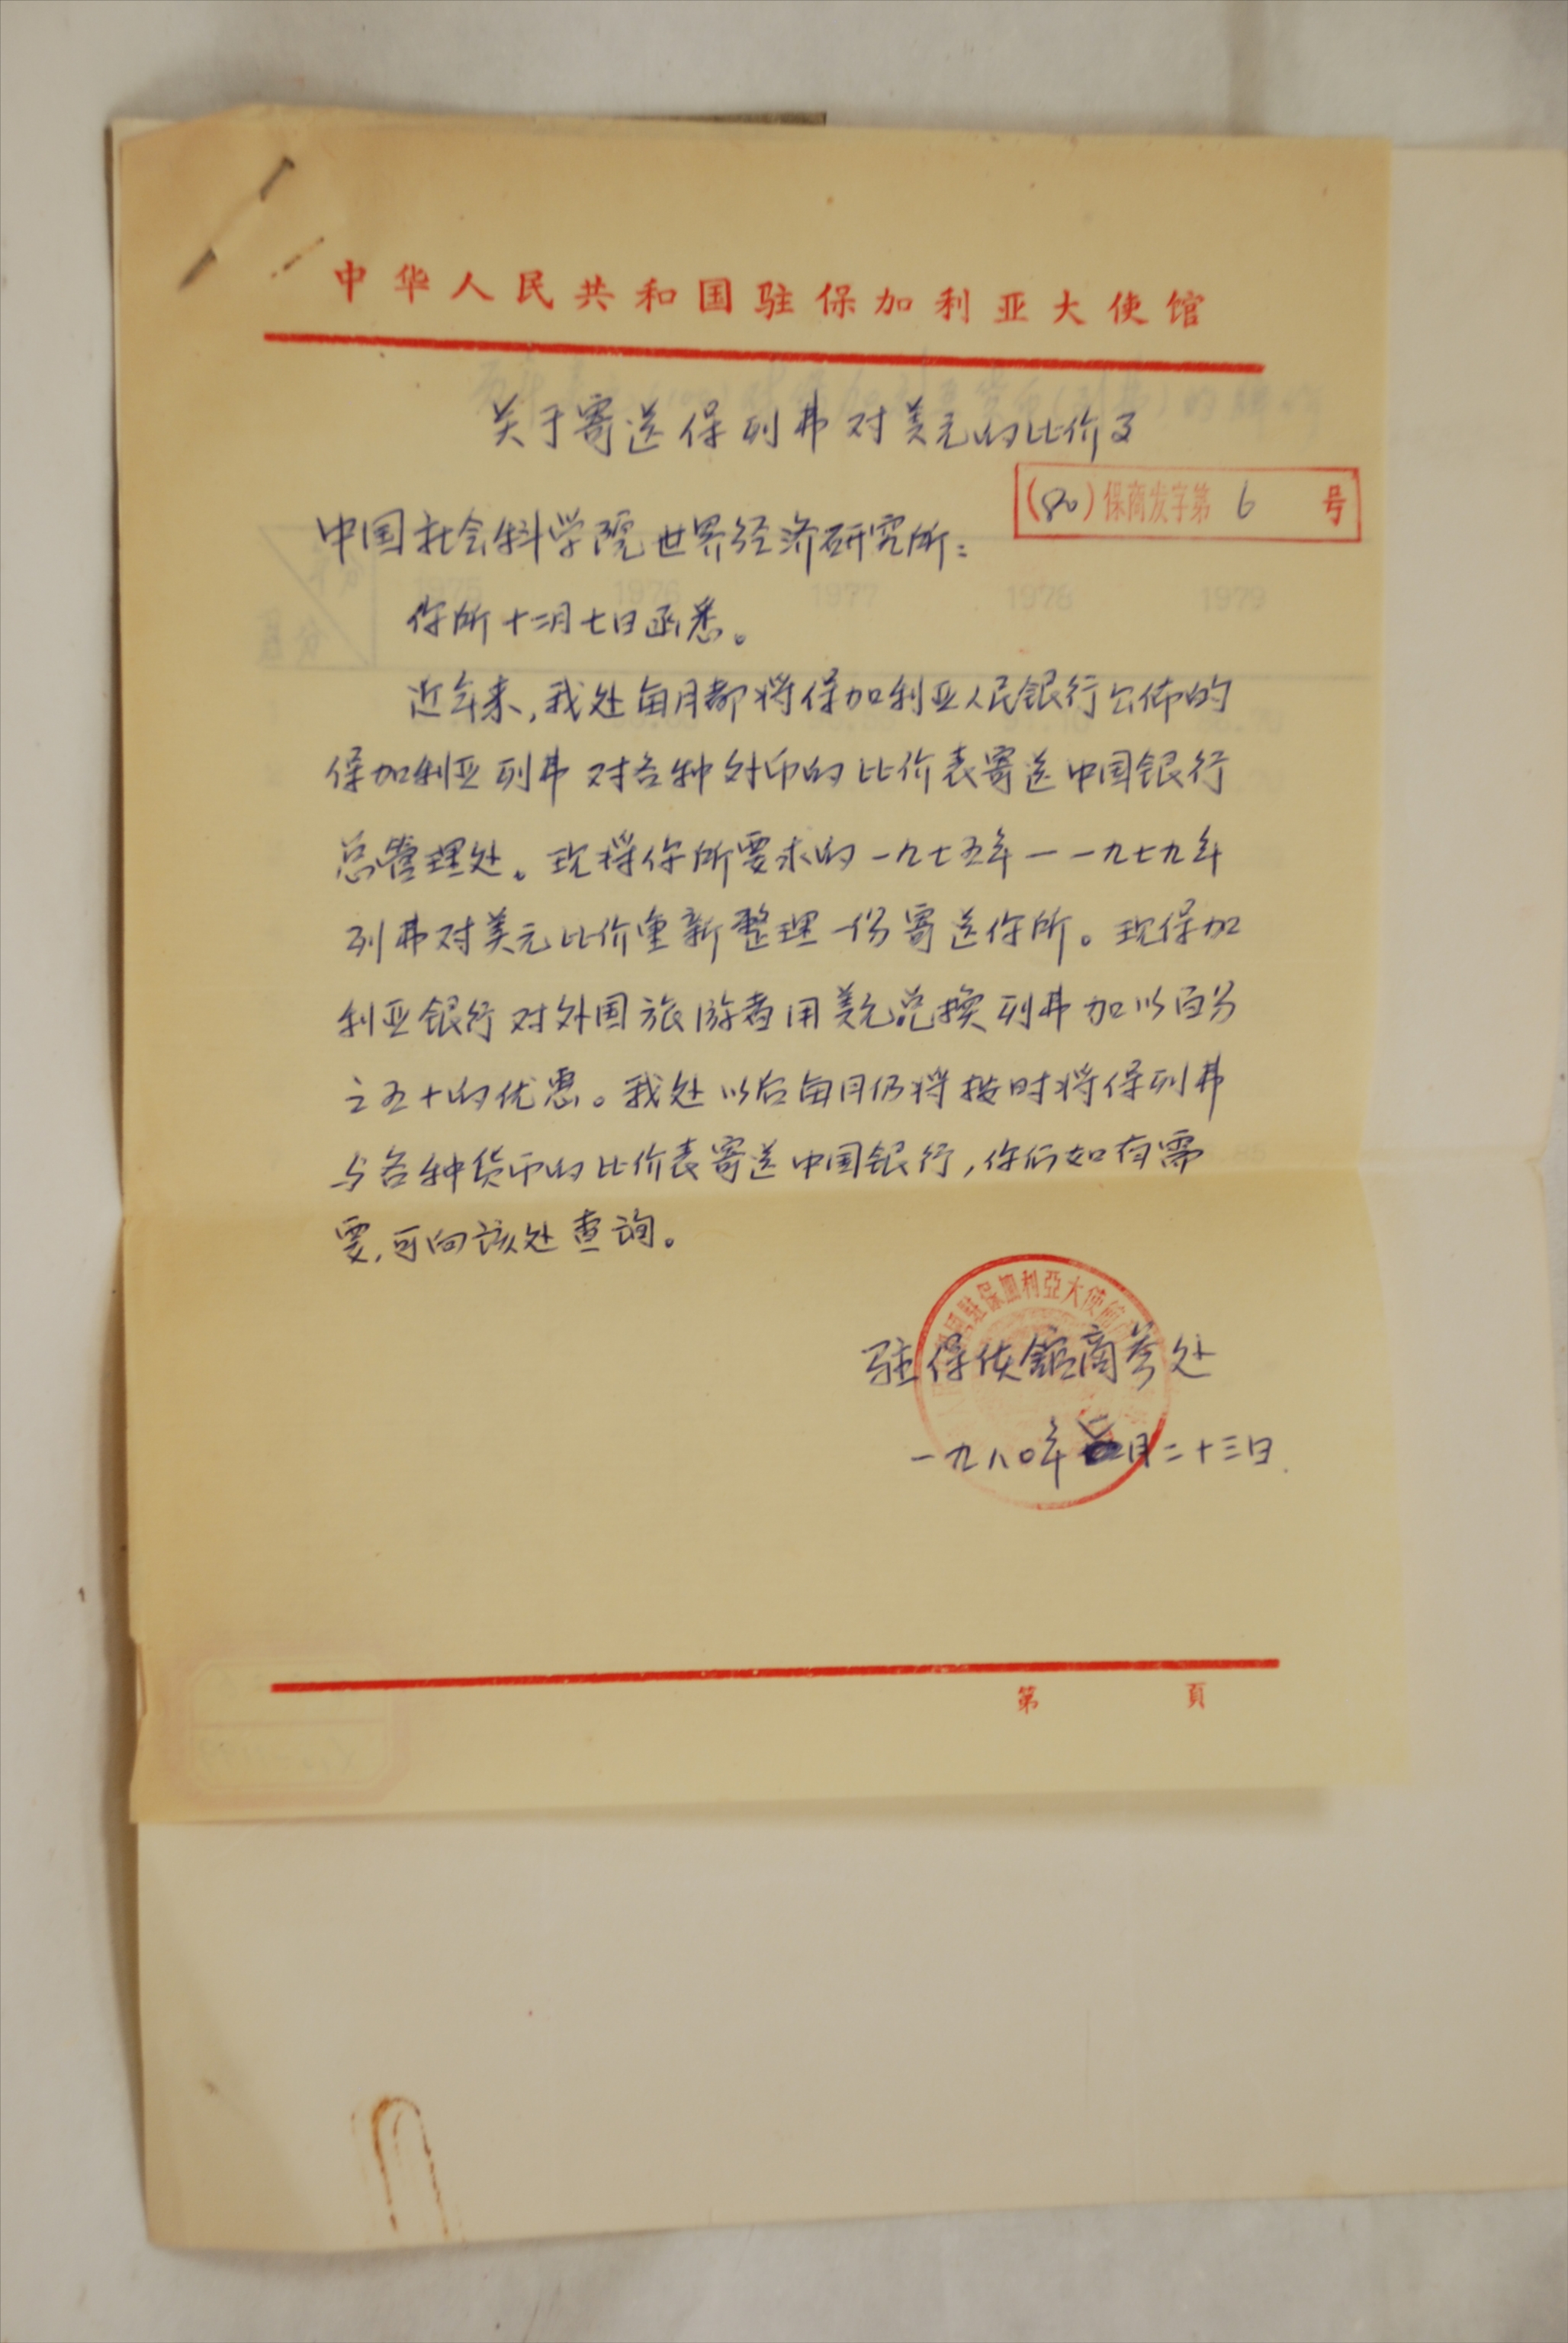 中华人民共和国驻保加利亚大使馆
关于寄送保列弗对美元的比价事
(80)保商发字第6号
中国社会科学院世界经济研究所:
你所十二月七日函悉。
近年来,我处每月都将保加利亚人民银行公佈的
保加利亚列弗对各种外币的比价表寄送中国银行
总管理处。现将你所要求的一九七五年——一九七九年
列弗对美元比价重新整理一份寄送你所。现保加
利亚银行对外国旅游者用美元兑换列弗加以百分
之五十的优惠。我处以后每月仍将按时将保列弗
与各种货币的比价表寄送中国银行,你们如有需
要,可向该处查询。
驻保加利亞大使館
驻保使馆商参处
一九八〇年 月二十三日
第 頁
1975 1976 1977 1978 1979